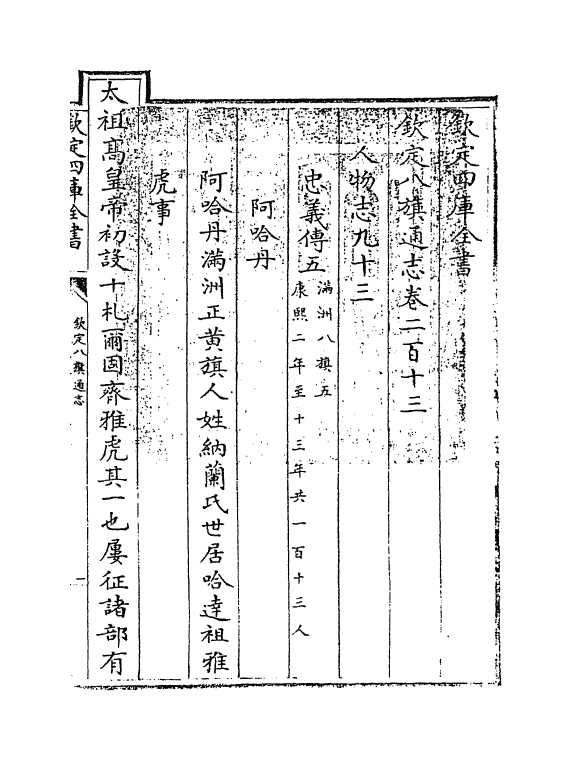 欽定四庫全書
欽定八旗通志卷二百十三
人物志九十三
忠義傳五 滿洲八旗五
康熙二年至十三年共一百十三人
阿哈丹
阿哈丹滿洲正黃旗人姓納蘭氏世居哈達祖雅
虎事
太祖高皇帝初設十札爾固齊雅虎其一也屢征諸部有
欽定四庫全書
欽定八旗通志
一